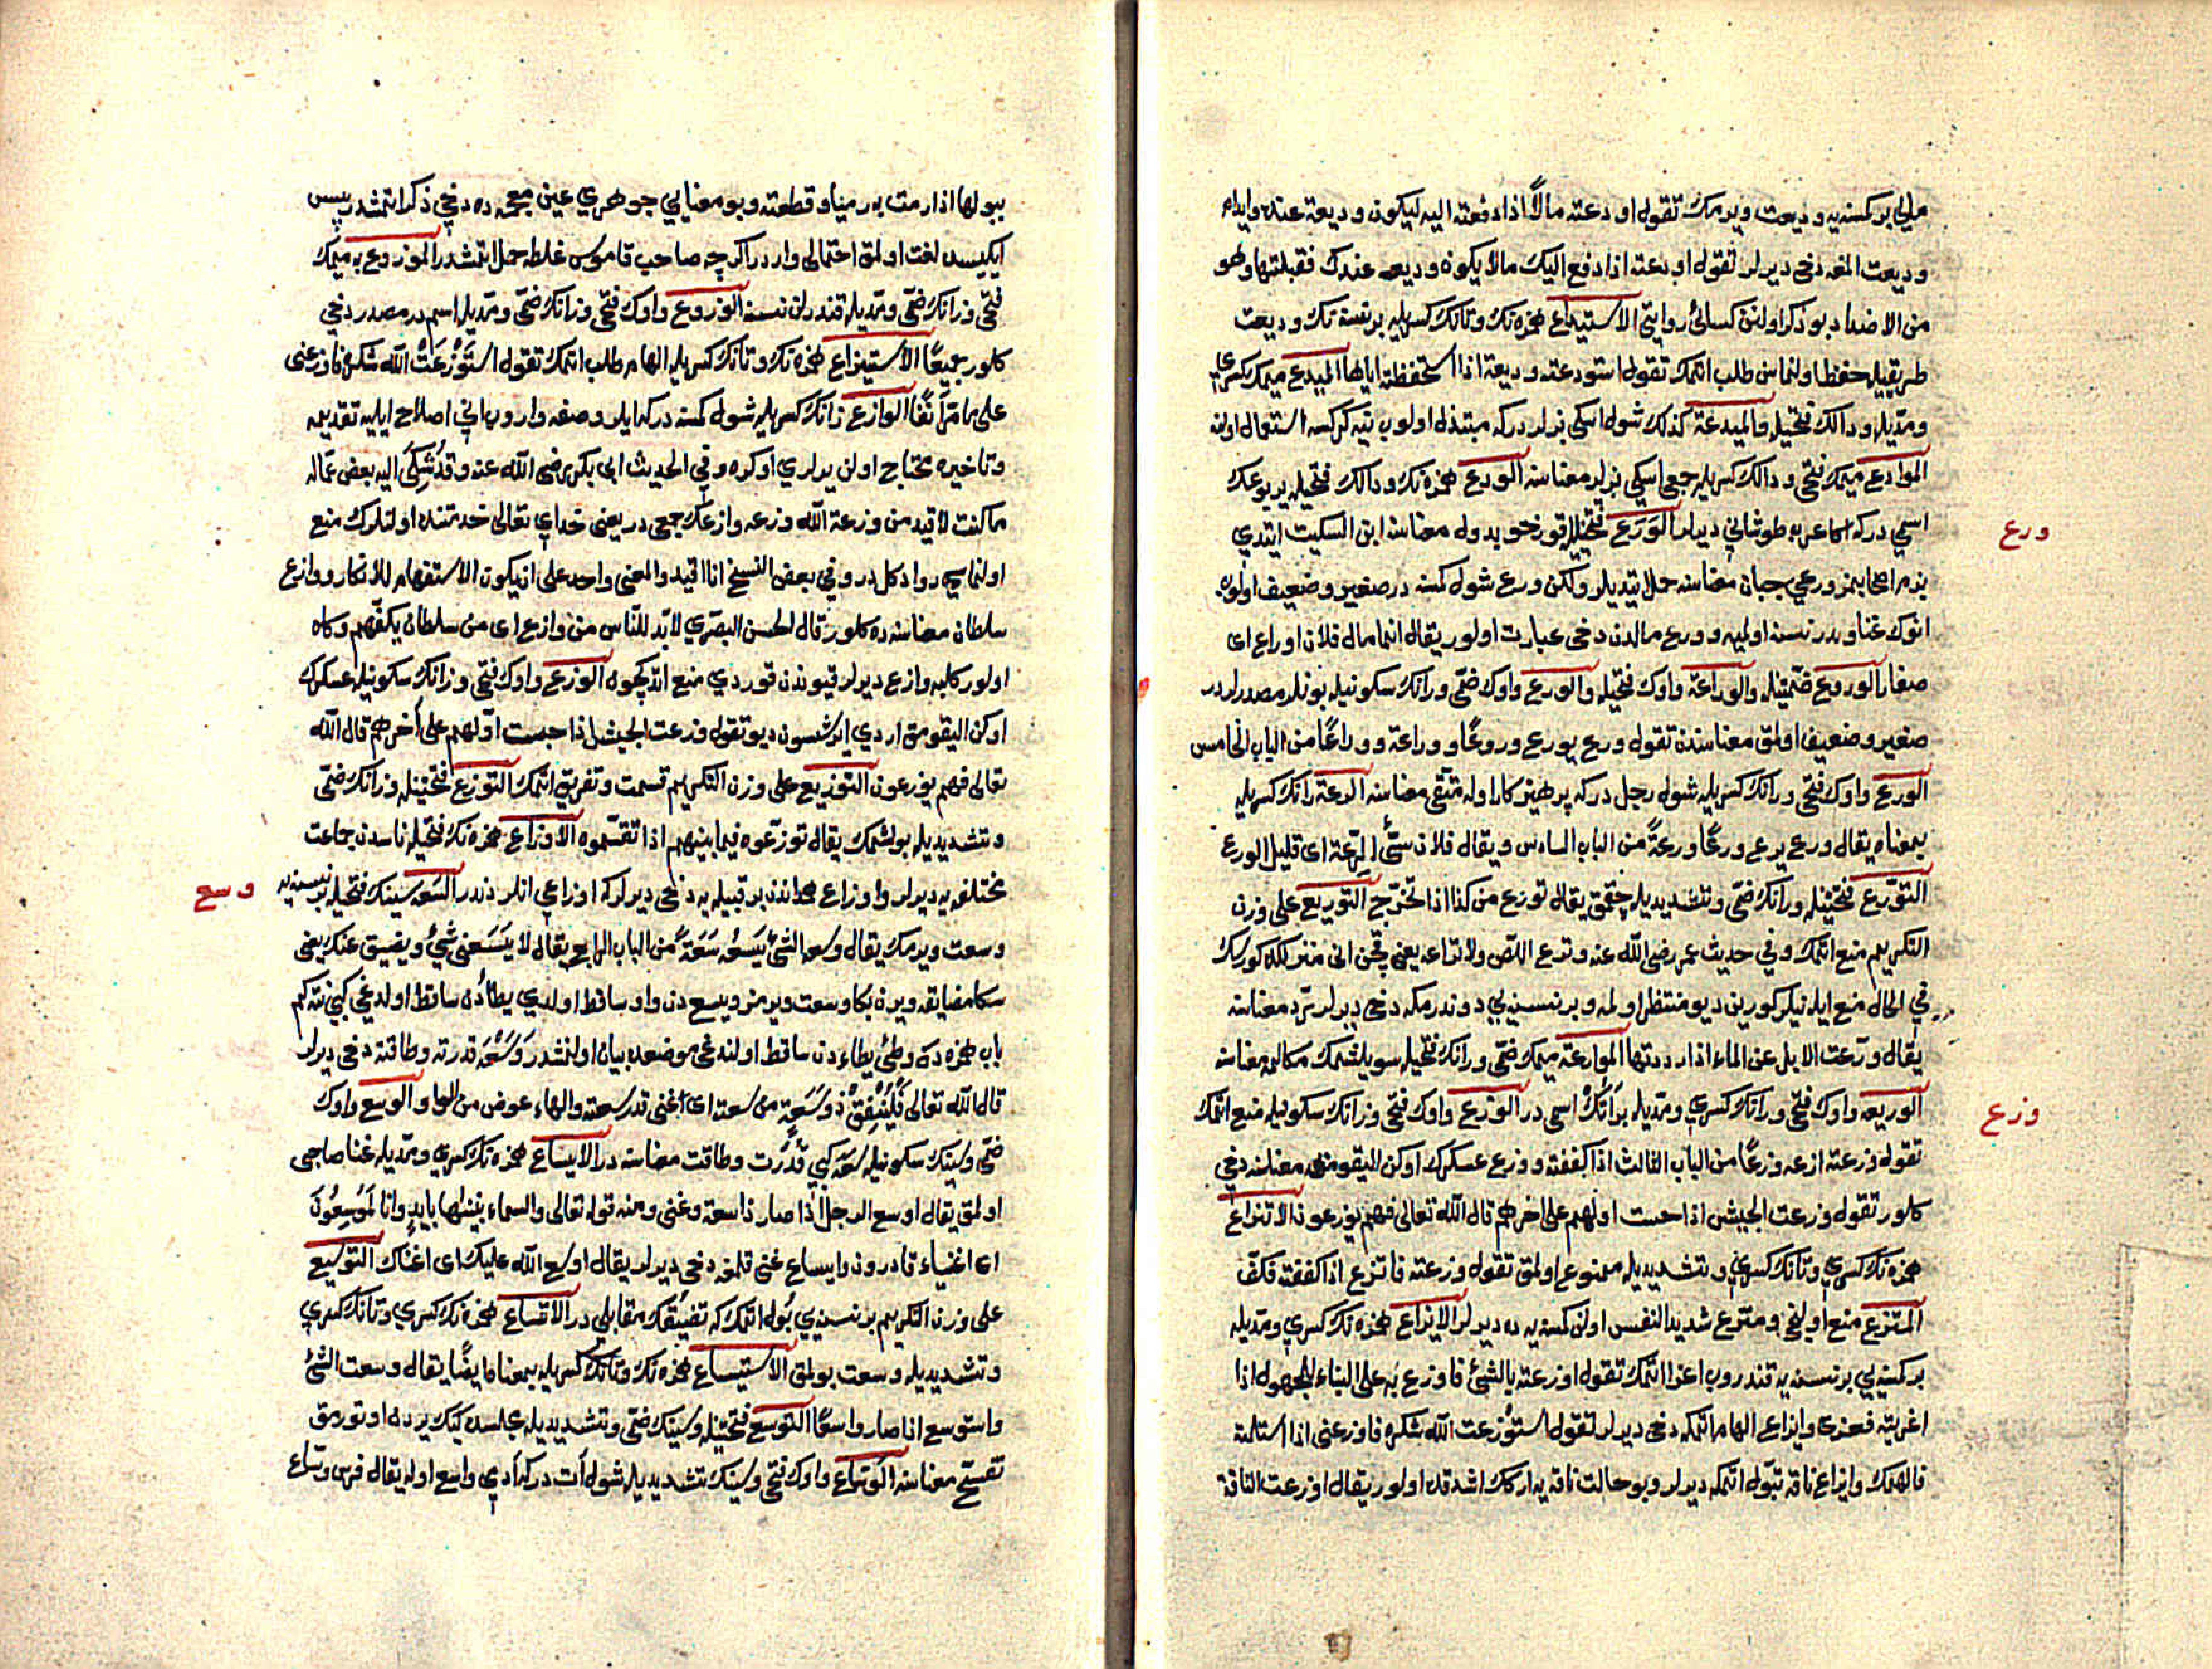 مالی بر کسنه‌یه ودیعت ویرمك تقول اودعته مالًا اذا دفعته الیه لیکون ودیعة عنده وایداع
ودیعت المغه دخی دیرلر تقول اودعته اذا دفع الیك مالا یکون ودیعه عندك فقبلتها وهو
من الاضداد بو ذکر اولنن کسائی روایتی الاستیداع همزه‌نك وتانك کسریله بر نسنه‌نك ودیعت
طریقیله حفظ اولنماسن طلب اتمك تقول استودعته ودیعة اذا استحفظته ایاها المیدع میمك کسری
ومدیله ودالك فتحیله والمیدعة کذلك شول اسکی بزلر درکه مبتذل اولوب استعمال اولنه
الموادع میمك فتحی ودالك کسریله جمعی اسکی بزلر معناسنه الودع همزه‌نك ودالك فتحیله یربوعك
اسمی درکه اکا عربه طوشانی دیرلر الورع فتحتیله قورخو یدول معناسنه ابن السکیت ایتدی
ورع
بزم اصحابمز ورعی جبان معناسنه حمل ایتدیلر ولکن ورع شول کسنه در صغیر وضعیف اولوب
انوك غنا ویرر نسنه اولمیه وورع مالدن دخی عبارت اولور یقال انما مال فلان اوراع ای
صغار الوروع ضمتیله والوراعة واوك فتحیله والورع واوك ضمی ورانك سکونیله بونلر مصدرلر در
صغیر وضعیف اولمق معناسندن تقول ورع یورع وروعًا ووراعة ووراعًا من الباب الخامس
الورع واوك فتحی ورانك کسریله شول رجل درکه پرهیزکار اوله متقی معناسنه الرعة رانك کسریله
بمعناه یقال ورع یرع ورعًا ورعةً من الباب السادس ویقال فلان سیّئ الرعة ای قلیل الورع
التورّع فتحتیله ورانك ضمی وتشدیدیله چقمق یقال تورع من کذا اذا تحرّج التوریع علی وزن
التکریم منع اتمك وفی حدیث عمر رضی الله عنه ورّع اللص ولا تراعه یعنی قچن انی منزلکده کورسك
فی الحال منع ایله نیلر کورین دیو منتظر اولمه وبر نسنه‌یی دوندرمکه دخی دیرلر ردّ معناسنه
یقال ورّعت الابل عن الماء اذا رددتها الموارعة میمك ضمی ورانك فتحیله سویلشمك مکالمه معناسنه
الوریعه واوك فتحی ورانك کسری ومدیله بر آتك اسمی در الوزع واوك فتحی وزانك سکونیله منع اتمك
وزع
تقول وزعته ازعه وزعًا من الباب الثالث اذا کففته ووزع عسکرك اوکن الیقومق معناسنه دخی
کلور تقول وزعت الجیش اذا حبست اولهم علی اخرهم قال الله تعالی فهم یوزعون الاتزاع
همزه‌نك کسری وتانك کسری وتشدیدیله ممنوع اولمق تقول وزعته فاتزع اذا کففته فکفّ
المتزع منع اولنجی ومتزع شدید النفس اولن کسنه‌یه ده دیرلر الایزاع همزه‌نك کسری ومدیله
بر کسنه‌یی بر نسنه‌یه قندروب اغرا اتمك تقول اوزعته بالشئ فاوزع به علی البناء للمجهول اذا
اغریته فغری وایزاع الهام اتمکه دخی دیرلر تقول استوزعت الله شکره فاوزعنی اذا استلهمته
فالهمك وایزاع ناقه تبول اتمکه دیرلر وبو حالت ناقه‌یه ارکك اشدقده اولور یقال اوزعت الناقة
ببولها اذا رمت به رمیا وقطعته وبو معنایی جوهری عین معجمه ده دخی ذکر اتمشدر پس
ایکیسده لغت اولمق احتمالی وار در اکرچه صاحب قاموس غلطه حمل اتمشدر الموزوع به میمك
فتحی وزانك ضمی ومدیله قندرلن نسنه الوزوع واوك فتحی وزانك ضمی ومدیله اسمدر مصدر دخی
کلور جمیعًا الاستیزاع همزه‌نك وتانك کسریله الهام طلب اتمك تقول استوزعت الله شکره فاوزعنی
علی ما مرّ آنفًا الوازع زانك کسریله شول کسنه درکه ایلرو صفه واروب انی اصلاح ایلیه تقدیمه
وتأخیره محتاج اولن یرلری اوکره وفی الحدیث ابی بکر رضی الله عنه وقد شُکی الیه بعض عماله
ما کنت لاقید من وزعة الله وزعه وازعك جمعی در یعنی خدای تعالی خدمتنده اولنلرك منع
اولنماسی روا دکلدر وفی بعض النسخ انا اقید والمعنی واحد علی ان یکون الاستفهام للانکار ووازع
سلطان معناسنه ده کلور قال الحسن البصری لا بدّ للناس من وازع ای من سلطان یکفّهم وکاه
اولور کلبه وازع دیرلر قیوندن قوردی منع اتدیکچون الوزع واوك فتحی وزانك سکونیله عسکرك
اوکن الیقومق اردی ایرشسون دیو تقول وزعت الجیش اذا حبست اوّلهم علی آخرهم قال الله
تعالی فهم یوزعون التوزیع علی وزن التکریم قسمت وتفریق اتمك التوزع فتحتیله وزانك ضمی
وتشدیدیله بولشمك یقال توزّعوه فیما بینهم اذا تقسّموه الاوزاع همزه‌نك فتحیله ناسدن جماعت
مختلفه‌یه دیرلر واوزاع همداندن بر قبیله‌یه دخی دیرلرکه اوزاعی انلردندر السعه سینك فتحیله بر نسنه‌یه
وسع
وسعت ویرمك یقال وسعه الشئ یسعه سَعَةً من الباب الرابع یقال لا یسعنی شئ ویضیق عنك یعنی
سکا مضایقه ویرن بکا وسعت ویرمز ویسع دن واو ساقط اولدی یطأ دن ساقط اولدغی کبی نته کم
باب همزه ده وطئ یطاء دن ساقط اولندغی موضعده بیان اولنشدر وسعه قدرته وطاقته دخی دیرلر
قال الله تعالی فَلْیُنْفِقْ ذو سَعَةٍ من سعته ای اغنی قدر سعته والهاء عوض من الواو الوسع واوك
ضمی وسینك سکونیله سعه کبی قدرت وطاقت معناسنه در الایساع همزه‌نك کسری ومدیله غنا صاحبی
اولمق یقال اوسع الرجل اذا صار ذا سعة وغنی ومنه قوله تعالی والسماء بنیناها بایدٍ وانا لَمُوسِعُونَ
ای اغنیاء قادرون وایساع غنی قلمغه دخی دیرلر یقال اوسع الله علیك ای اغناك التوسیع
علی وزن التکریم بر نسنه‌یی بُول اتمك که تضییقك مقابلی در الاتساع همزه‌نك کسری وتانك کسری
وتشدیدیله وسعت بولمق الاستیساع همزه‌نك وتانك کسریله بمعناه ایضًا یقال وسعت الشئ
واستوسع اذا صار واسعًا التوسع فتحتیله وسینك ضمی وتشدیدیله مجلسده کیك یرده اوتورمق
تفسّح معناسنه الوساع واوك فتحی وسینك تشدیدیله شول آت درکه آدیمی واسع اوله یقال فرس وساع